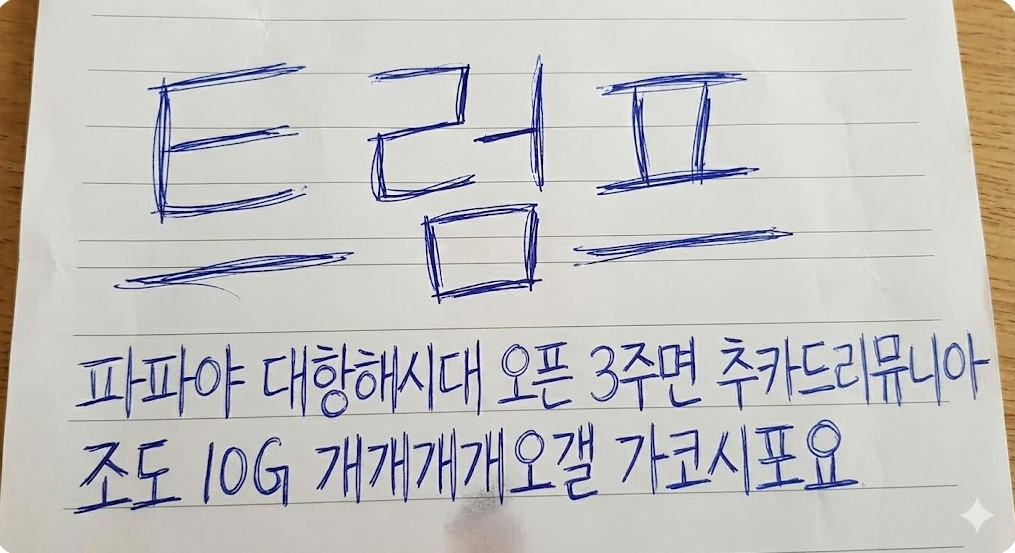 트럼프
파파야 대항해시대 오픈 3주면 추카드리뮤니아
조도 10G 개개개개오갤 가코시포요